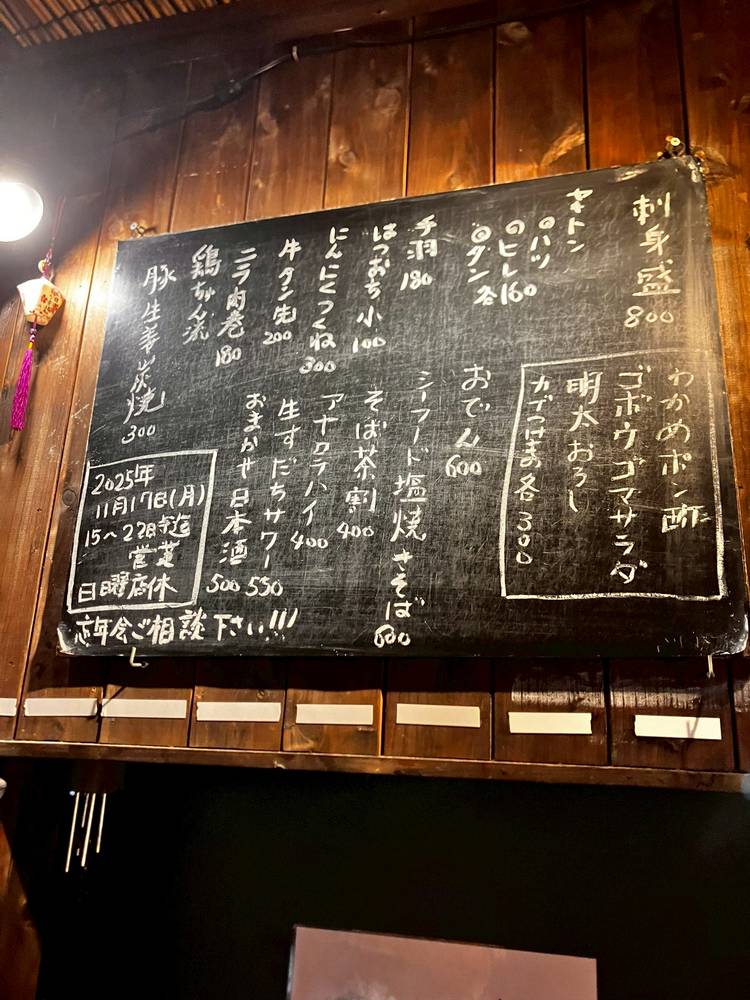 刺身盛
800
ヤキトン
◎ハツ
◎ヒレ
◎タン 各160
手羽
180
はつおち小
100
にんにくつくね
300
牛タン先
200
ニラ肉巻
180
鶏ちゃん流
豚生姜炭焼
300
わかめポン酢
ゴボウゴマサラダ
明太おろし
カブつけもの各300
おでん
600
シーフード塩焼きそば
600
そば茶割
400
アナクラハイ
400
生すだちサワー
550
おまかせ日本酒
500
2025年
11月17日(月)
15〜22時迄
営業
日曜店休
忘年会ご相談下さい!!!